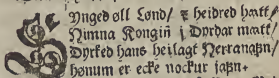 SYnged oll Lønd/ z heidred hætt/
Nimna Kongiñ i Dyrdar matt/
Dyrked hans heilagt Herranafn/
hønum er ecke nockur jafn.